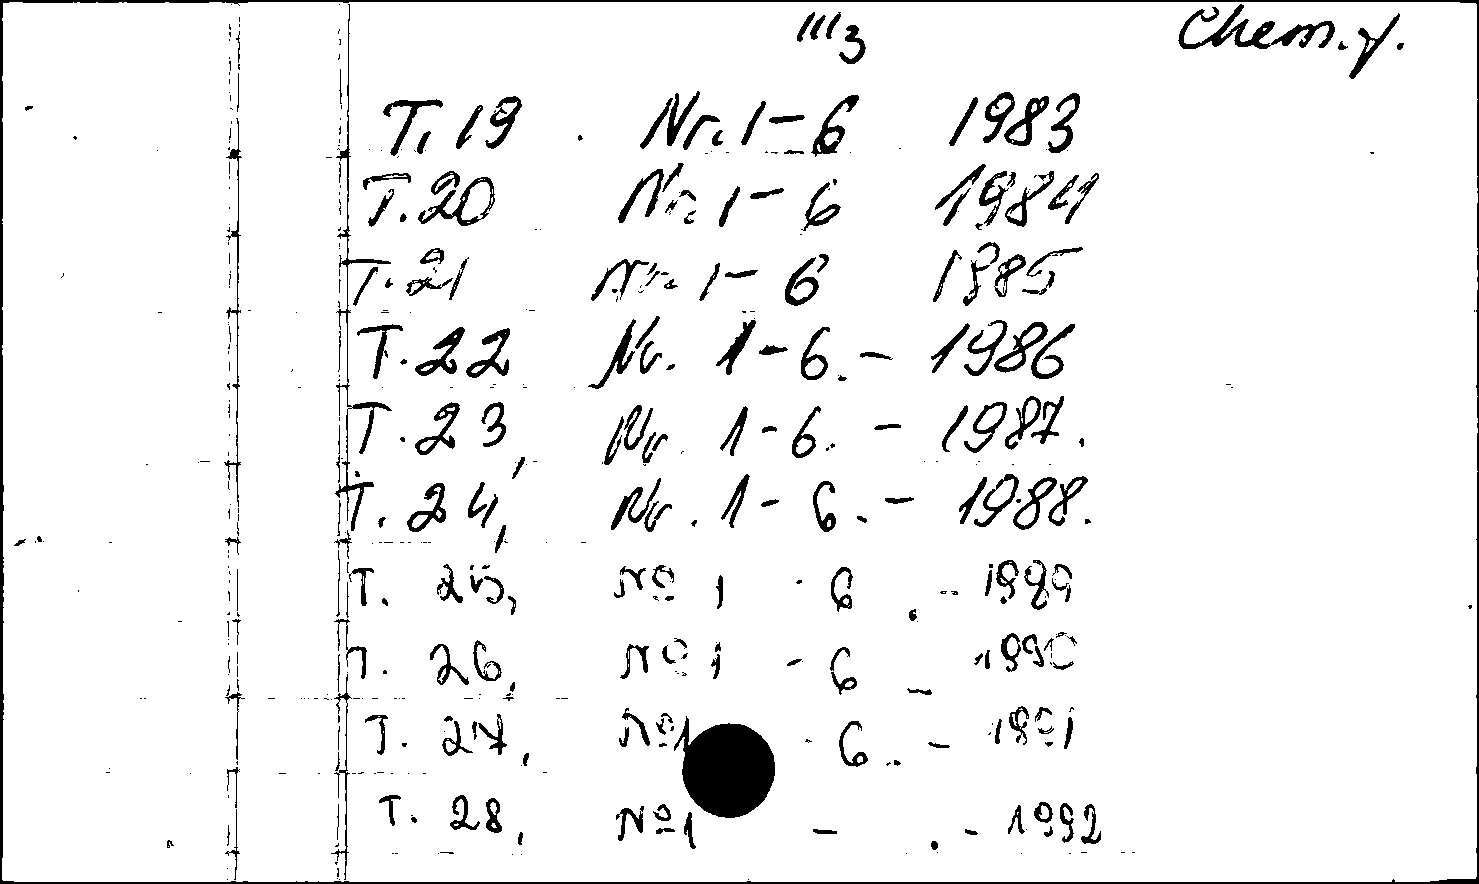 III3 Chem. y.
T. 19 Nr. 1-6 1983
T. 20 Nr. 1-6 1984
T. 21 Nr. 1-6 1985
T. 22 Nr. 1-6. - 1986
T. 23, Nr. 1-6. - 1987.
T. 24, Nr. 1-6. - 1988.
T. 25, № 1 - 6. - 1989
T. 26, № 1 - 6 - 1990
T. 27, № 1 - 6. - 1991
T. 28, № 1 - . - 1992